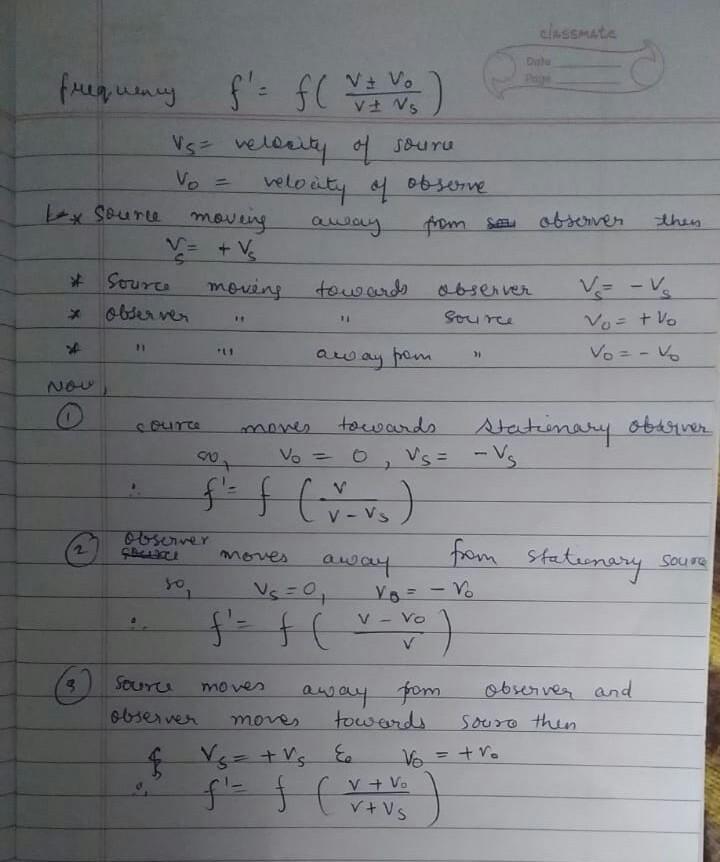 classmate
Date
Page
frequency f' = f( V ± Vo / V ± Vs )
Vs = velocity of source
Vo = velocity of observe
* Source moving away from observer then
Vs = + Vs
* Source moving towards observer Vs = - Vs
* observer " " source Vo = + Vo
* " " away from " Vo = - Vo
Now,
① source moves towards stationary observer
so, Vo = 0, Vs = - Vs
∴ f' = f ( V / V - Vs )
② observer moves away from stationary source
so, Vs = 0, Vo = - Vo
∴ f' = f ( V - Vo / V )
③ source moves away from observer and
observer moves towards source then
Vs = + Vs & Vo = + Vo
∴ f' = f ( V + Vo / V + Vs )